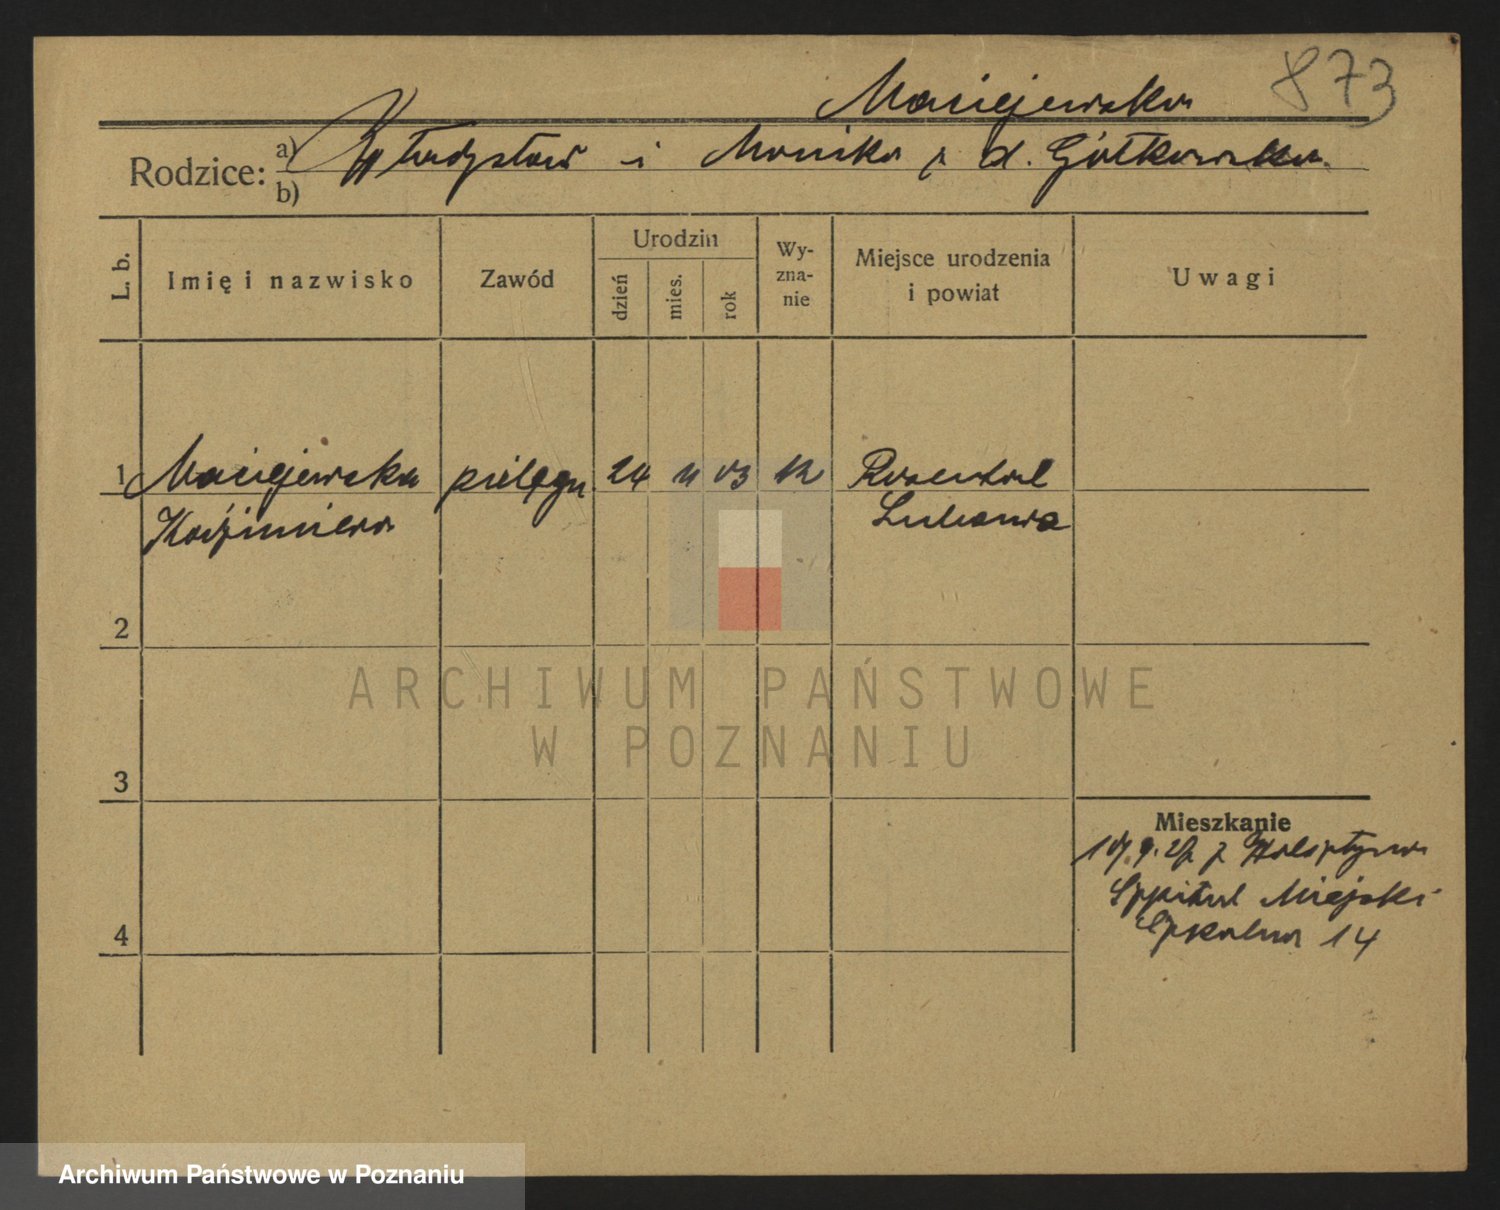 Maciejewska 873
Rodzice: a) Władysław i Monika z d. Gółkowska
b)
L. b. Imię i nazwisko Zawód Urodzin dzień mies. rok Wy-zna-nie Miejsce urodzenia i powiat Uwagi
1 Maciejewska pielęgn 24 11 03 Rosental
Kazimiera Lubawa
2
3
4
Mieszkanie
Szpital Miejski
Szkolna 14
ARCHIWUM PAŃSTWOWE
W POZNANIU
Archiwum Państwowe w Poznaniu